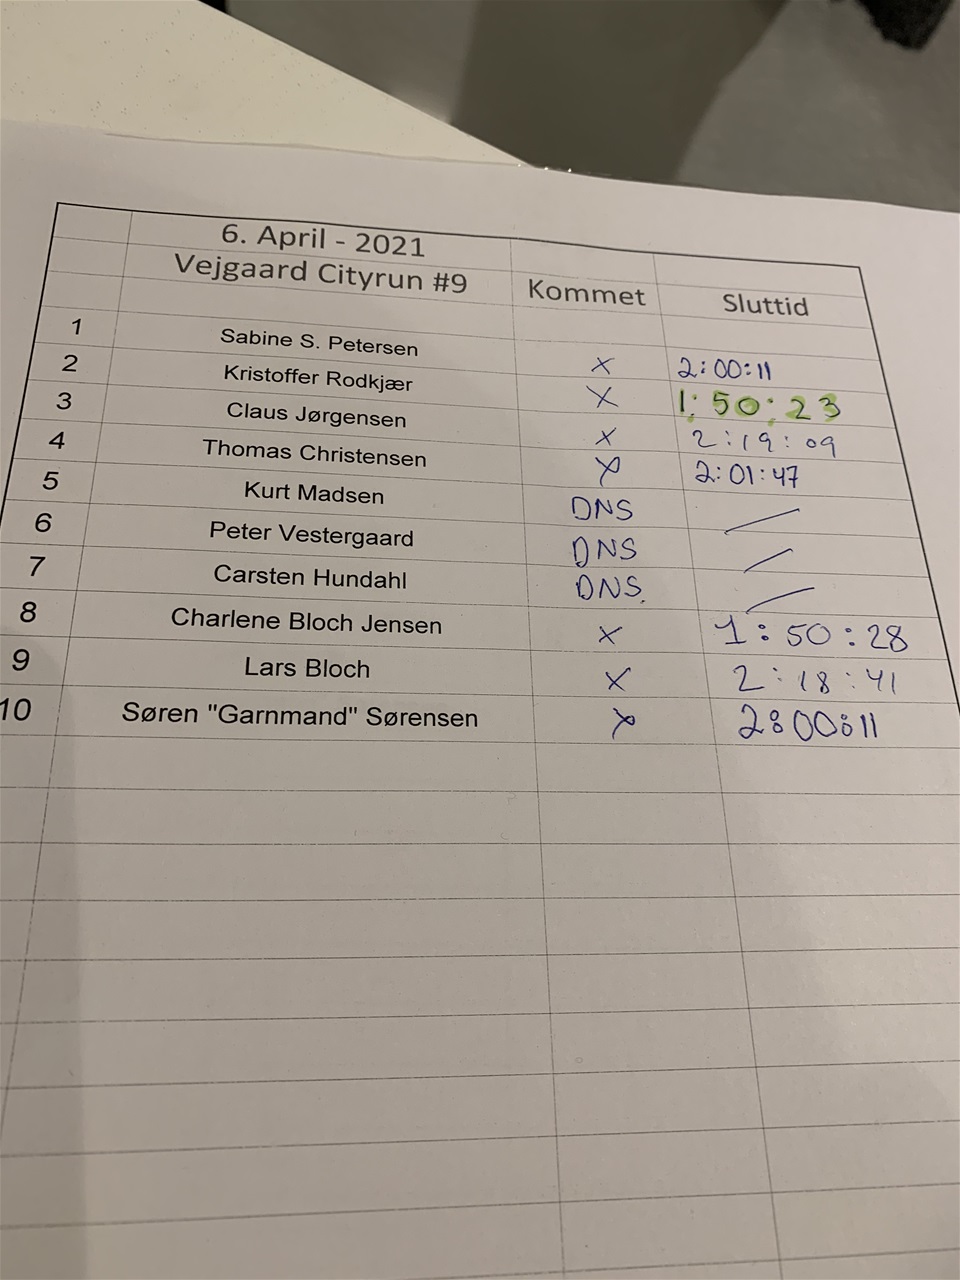 6. April - 2021
Vejgaard Cityrun #9 Kommet Sluttid
1 Sabine S. Petersen x 2:00:11
2 Kristoffer Rodkjær x 1:50:23
3 Claus Jørgensen x 2:19:09
4 Thomas Christensen x 2:01:47
5 Kurt Madsen DNS /
6 Peter Vestergaard DNS /
7 Carsten Hundahl DNS. /
8 Charlene Bloch Jensen x 1:50:28
9 Lars Bloch x 2:18:41
10 Søren "Garnmand" Sørensen x 2:00:11